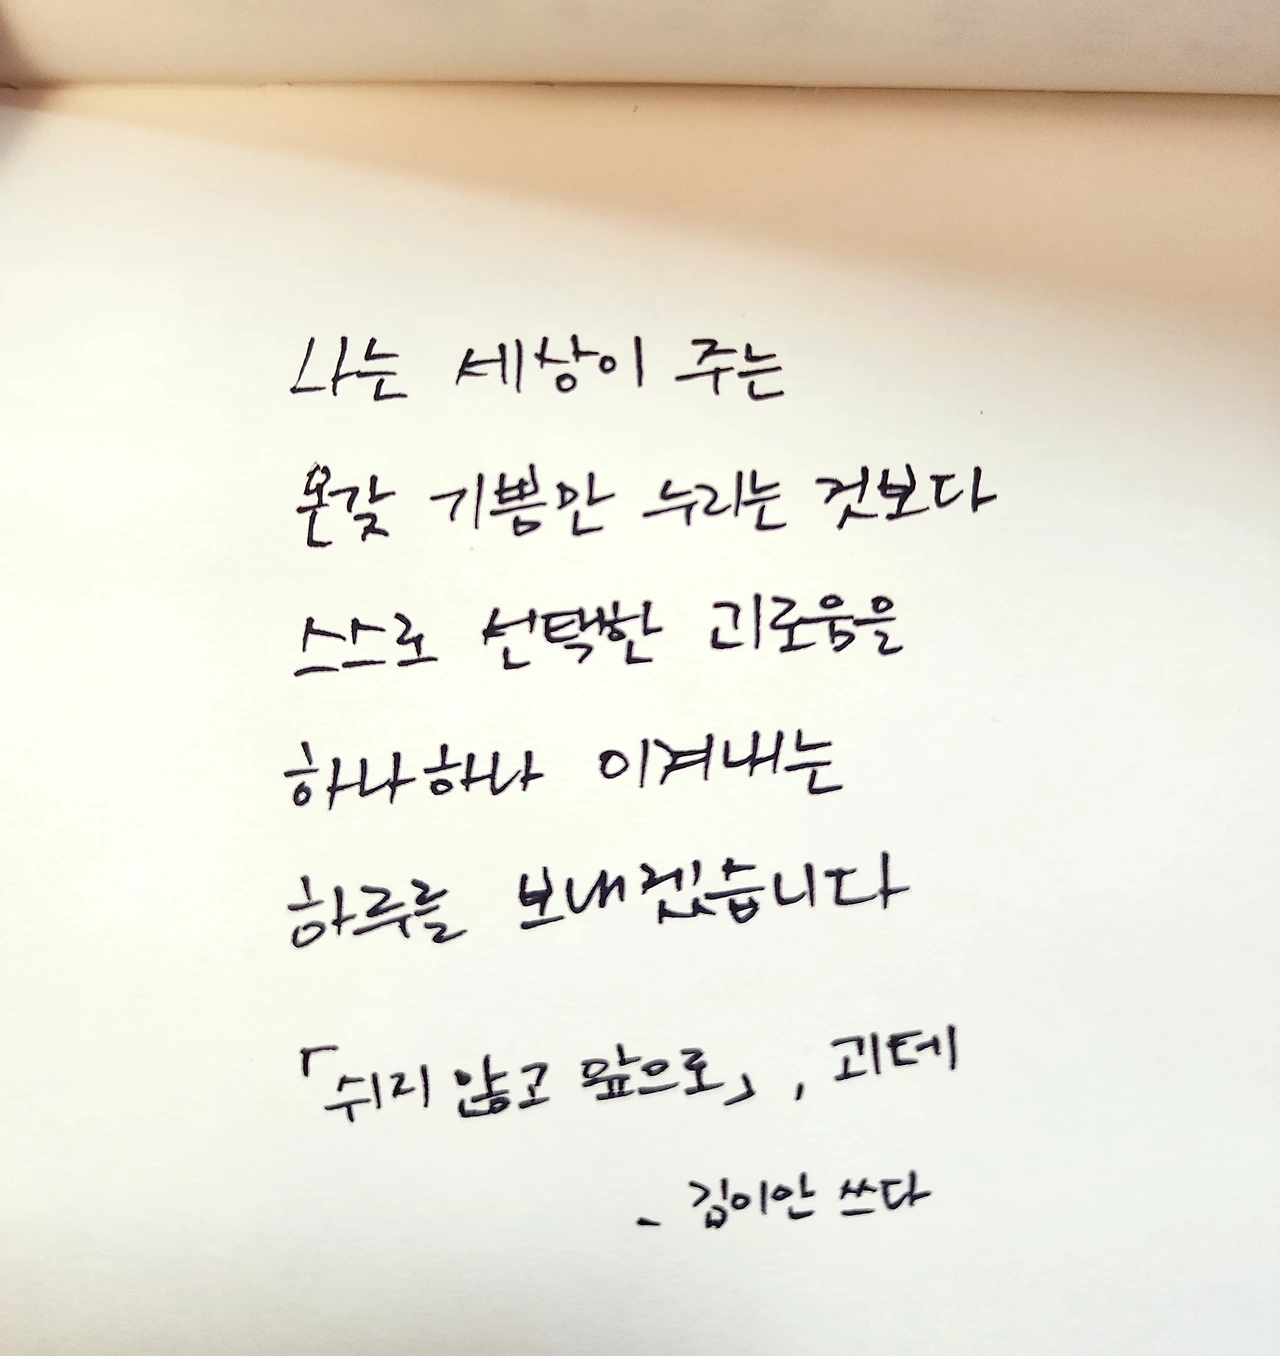 나는 세상이 주는
온갖 기쁨만 누리는 것보다
스스로 선택한 괴로움을
하나하나 이겨내는
하루를 보내겠습니다
「쉬지 않고 앞으로」, 괴테
- 김이안 쓰다